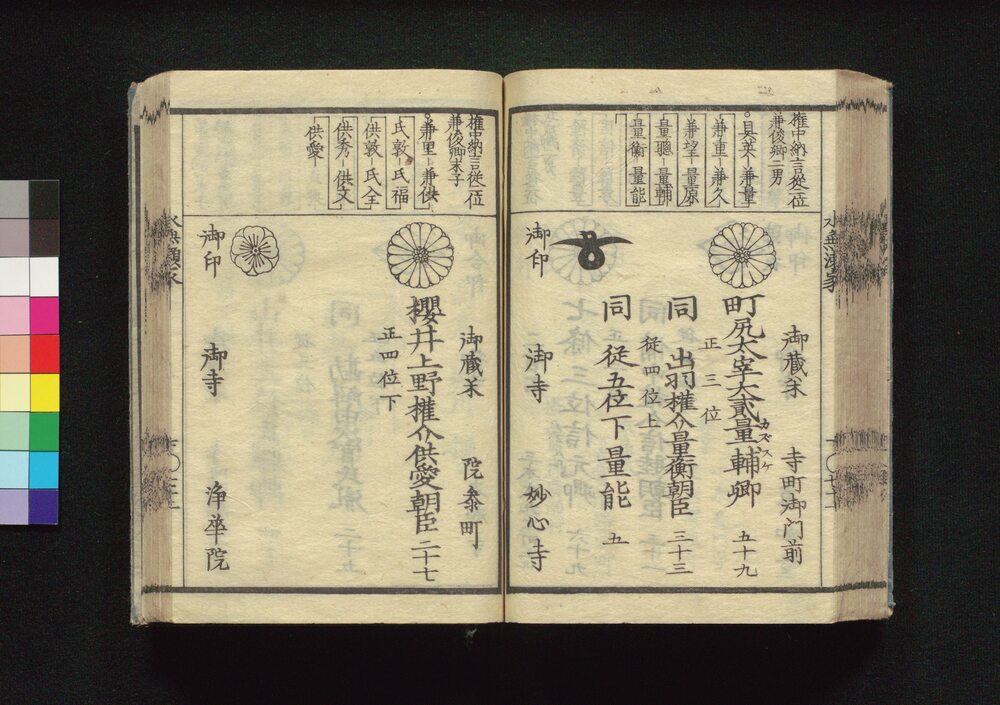 権中納言従二位
兼俊卿二男
具英 兼量
兼重 兼久
兼望 量原
量聰 量輔
量衡 量能
御蔵米 寺町御門前
町尻太宰大貳量輔卿 五十九
カズスケ
正三位
同 出羽権介量衡朝臣 三十三
従四位上
同 従五位下量能 五
御印 御寺 妙心寺
権中納言従二位
兼俊卿末子
兼里 兼供
氏敦 氏福
供敦 氏全
供秀 供文
供愛
御蔵米 院参町
櫻井上野権介供愛朝臣 二十七
正四位下
御印 御寺 浄華院
水無瀬家